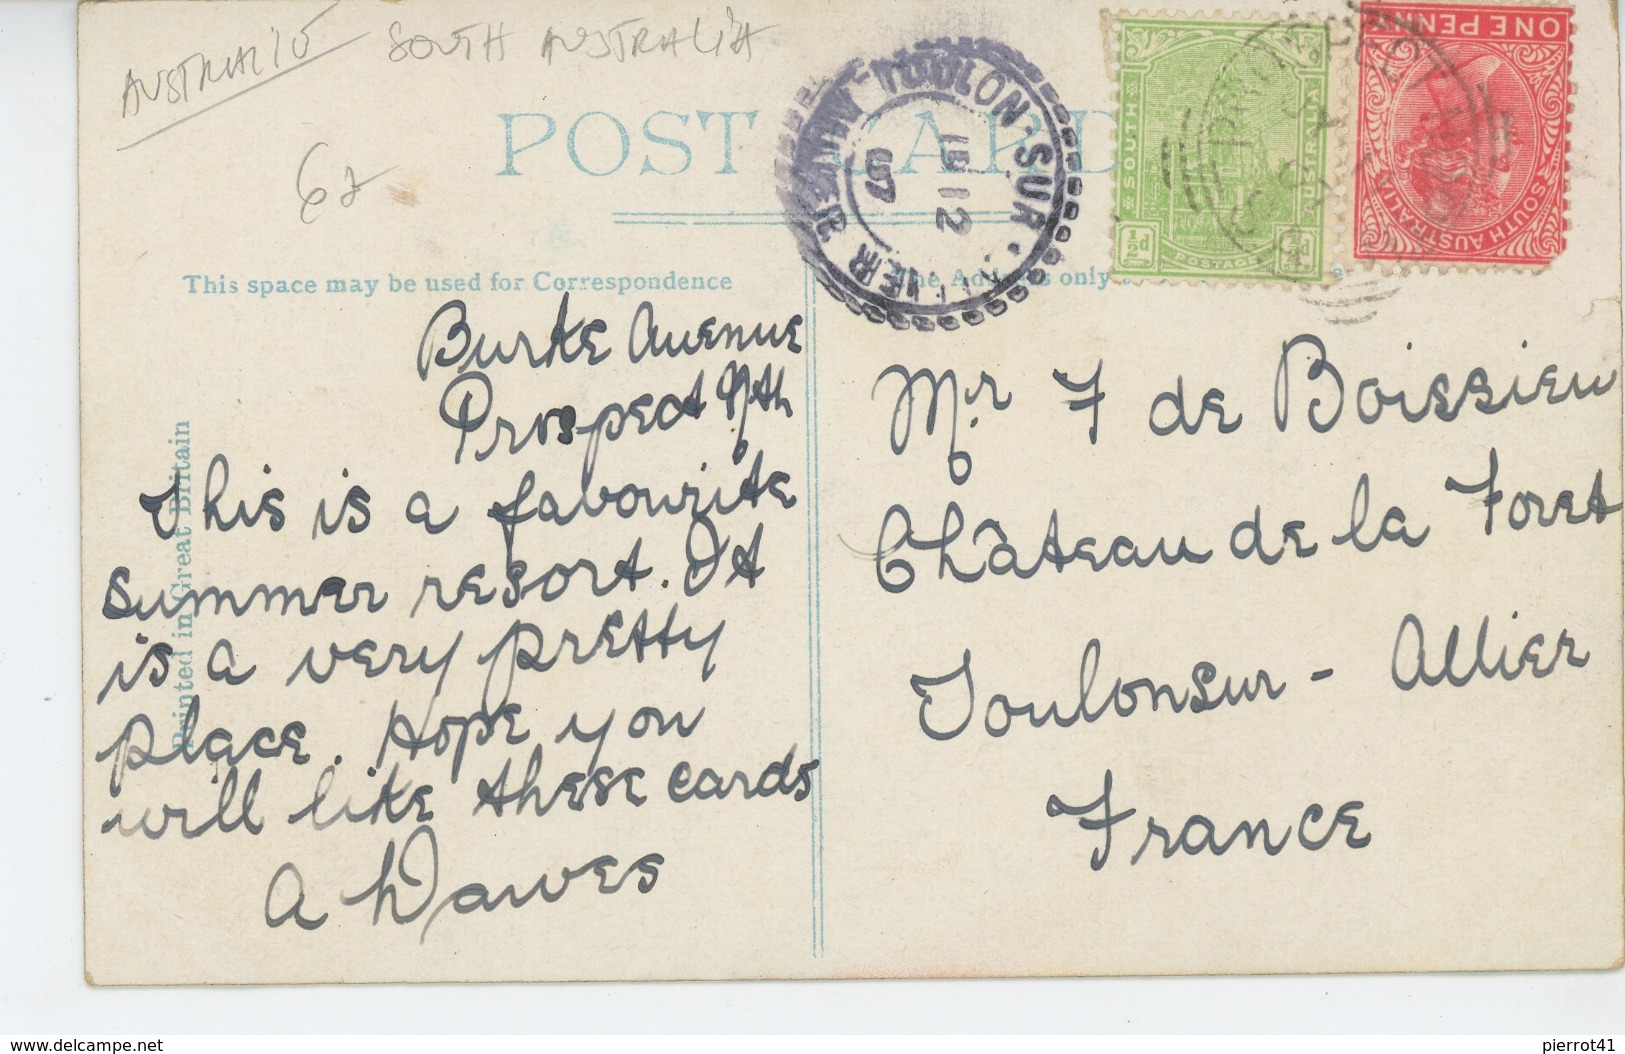 AUSTRALIE SOUTH AUSTRALIA
POST CARD
This space may be used for Correspondence
The Address only
TOULON-SUR-ALLIER
15 12
07
SOUTH AUSTRALIA
½d POSTAGE ½d
SOUTH AUSTRALIA
ONE PENNY
Printed in Great Britain
Burke Avenue
Prospect Nth
This is a favourite
summer resort. It
is a very pretty
place. Hope you
will like these cards
A W Dawes
Mr. F de Boissieu
Château de la Foret
Toulonsur - Allier
France
www.delcampe.net
pierrot41